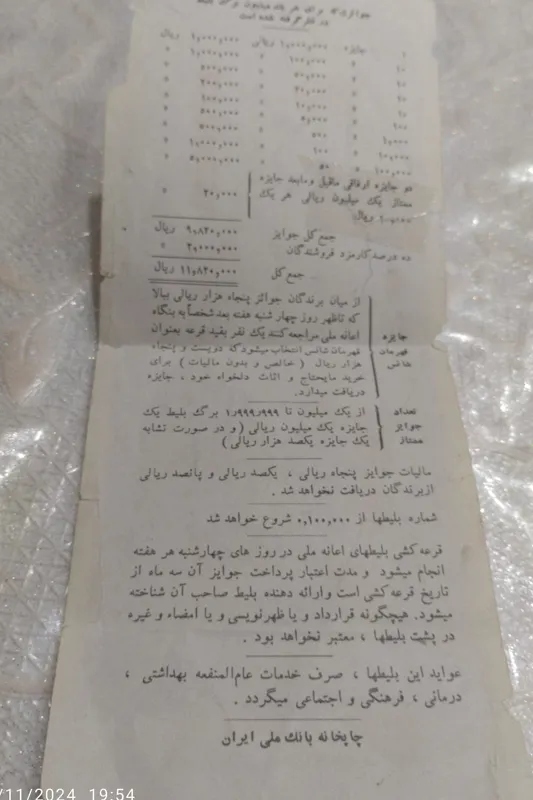 در نظر گرفته شده است
۱ جایزه ۱,۰۰۰,۰۰۰ ریالی ۱,۰۰۰,۰۰۰ ریال
۱۰ » ۱۰۰,۰۰۰ » ۱,۰۰۰,۰۰۰ »
۱۰ » ۵۰,۰۰۰ » ۵۰۰,۰۰۰ »
۱۰ » ۲۰,۰۰۰ » ۲۰۰,۰۰۰ »
۲۰ » ۱۰,۰۰۰ » ۲۰۰,۰۰۰ »
۲۰ » ۵,۰۰۰ » ۱۰۰,۰۰۰ »
۱۰۰ » ۵۰۰,۰۰۰ »
۱,۰۰۰ » ۵۰۰ » ۵۰۰,۰۰۰ »
۱۰,۰۰۰ » ۱۰۰ » ۱,۰۰۰,۰۰۰ »
۱۰۰,۰۰۰ » ۵۰ » ۵,۰۰۰,۰۰۰ »
دو جایزه ارفاقی ماقبل و مابعد جایزه
ممتاز یک میلیون ریالی هر یک ۲۰,۰۰۰ »
ریال
جمع کل جوایز ۹,۸۲۰,۰۰۰ ریال
ده درصد کارمزد فروشندگان ۲,۰۰۰,۰۰۰ »
جمع کل ۱۱,۸۲۰,۰۰۰ ریال
جایزه قهرمان شانس
از میان برندگان جوائز پنجاه هزار ریالی ببالا
که تاظهر روز چهار شنبه هفته بعد شخصاً به بنگاه
اعانه ملی مراجعه کنند یک نفر بقید قرعه بعنوان
قهرمان شانس انتخاب میشود که دویست و پنجاه
هزار ریال ( خالص و بدون مالیات ) برای
خرید مایحتاج و اثاث دلخواه خود ، جایزه
دریافت میدارد.
تعداد جوایز ممتاز
از یک میلیون تا ۱,۹۹۹,۹۹۹ برگ بلیط یک
جایزه یک میلیون ریالی ( و در صورت تشابه
یک جایزه یکصد هزار ریالی )
مالیات جوایز پنجاه ریالی ، یکصد ریالی و پانصد ریالی
از برندگان دریافت نخواهد شد .
شماره بلیطها از ۰,۱۰۰,۰۰۰ شروع خواهد شد
قرعه کشی بلیطهای اعانه ملی در روز های چهارشنبه هر هفته
انجام میشود و مدت اعتبار پرداخت جوایز آن سه ماه از
تاریخ قرعه کشی است و ارائه دهنده بلیط صاحب آن شناخته
میشود. هیچگونه قرارداد و یا ظهرنویسی و یا امضاء و غیره
در پشت بلیطها ، معتبر نخواهد بود .
عواید این بلیطها ، صرف خدمات عام‌المنفعه بهداشتی ،
درمانی ، فرهنگی و اجتماعی میگردد .
چاپخانه بانك ملی ایران
/11/2024 19:54